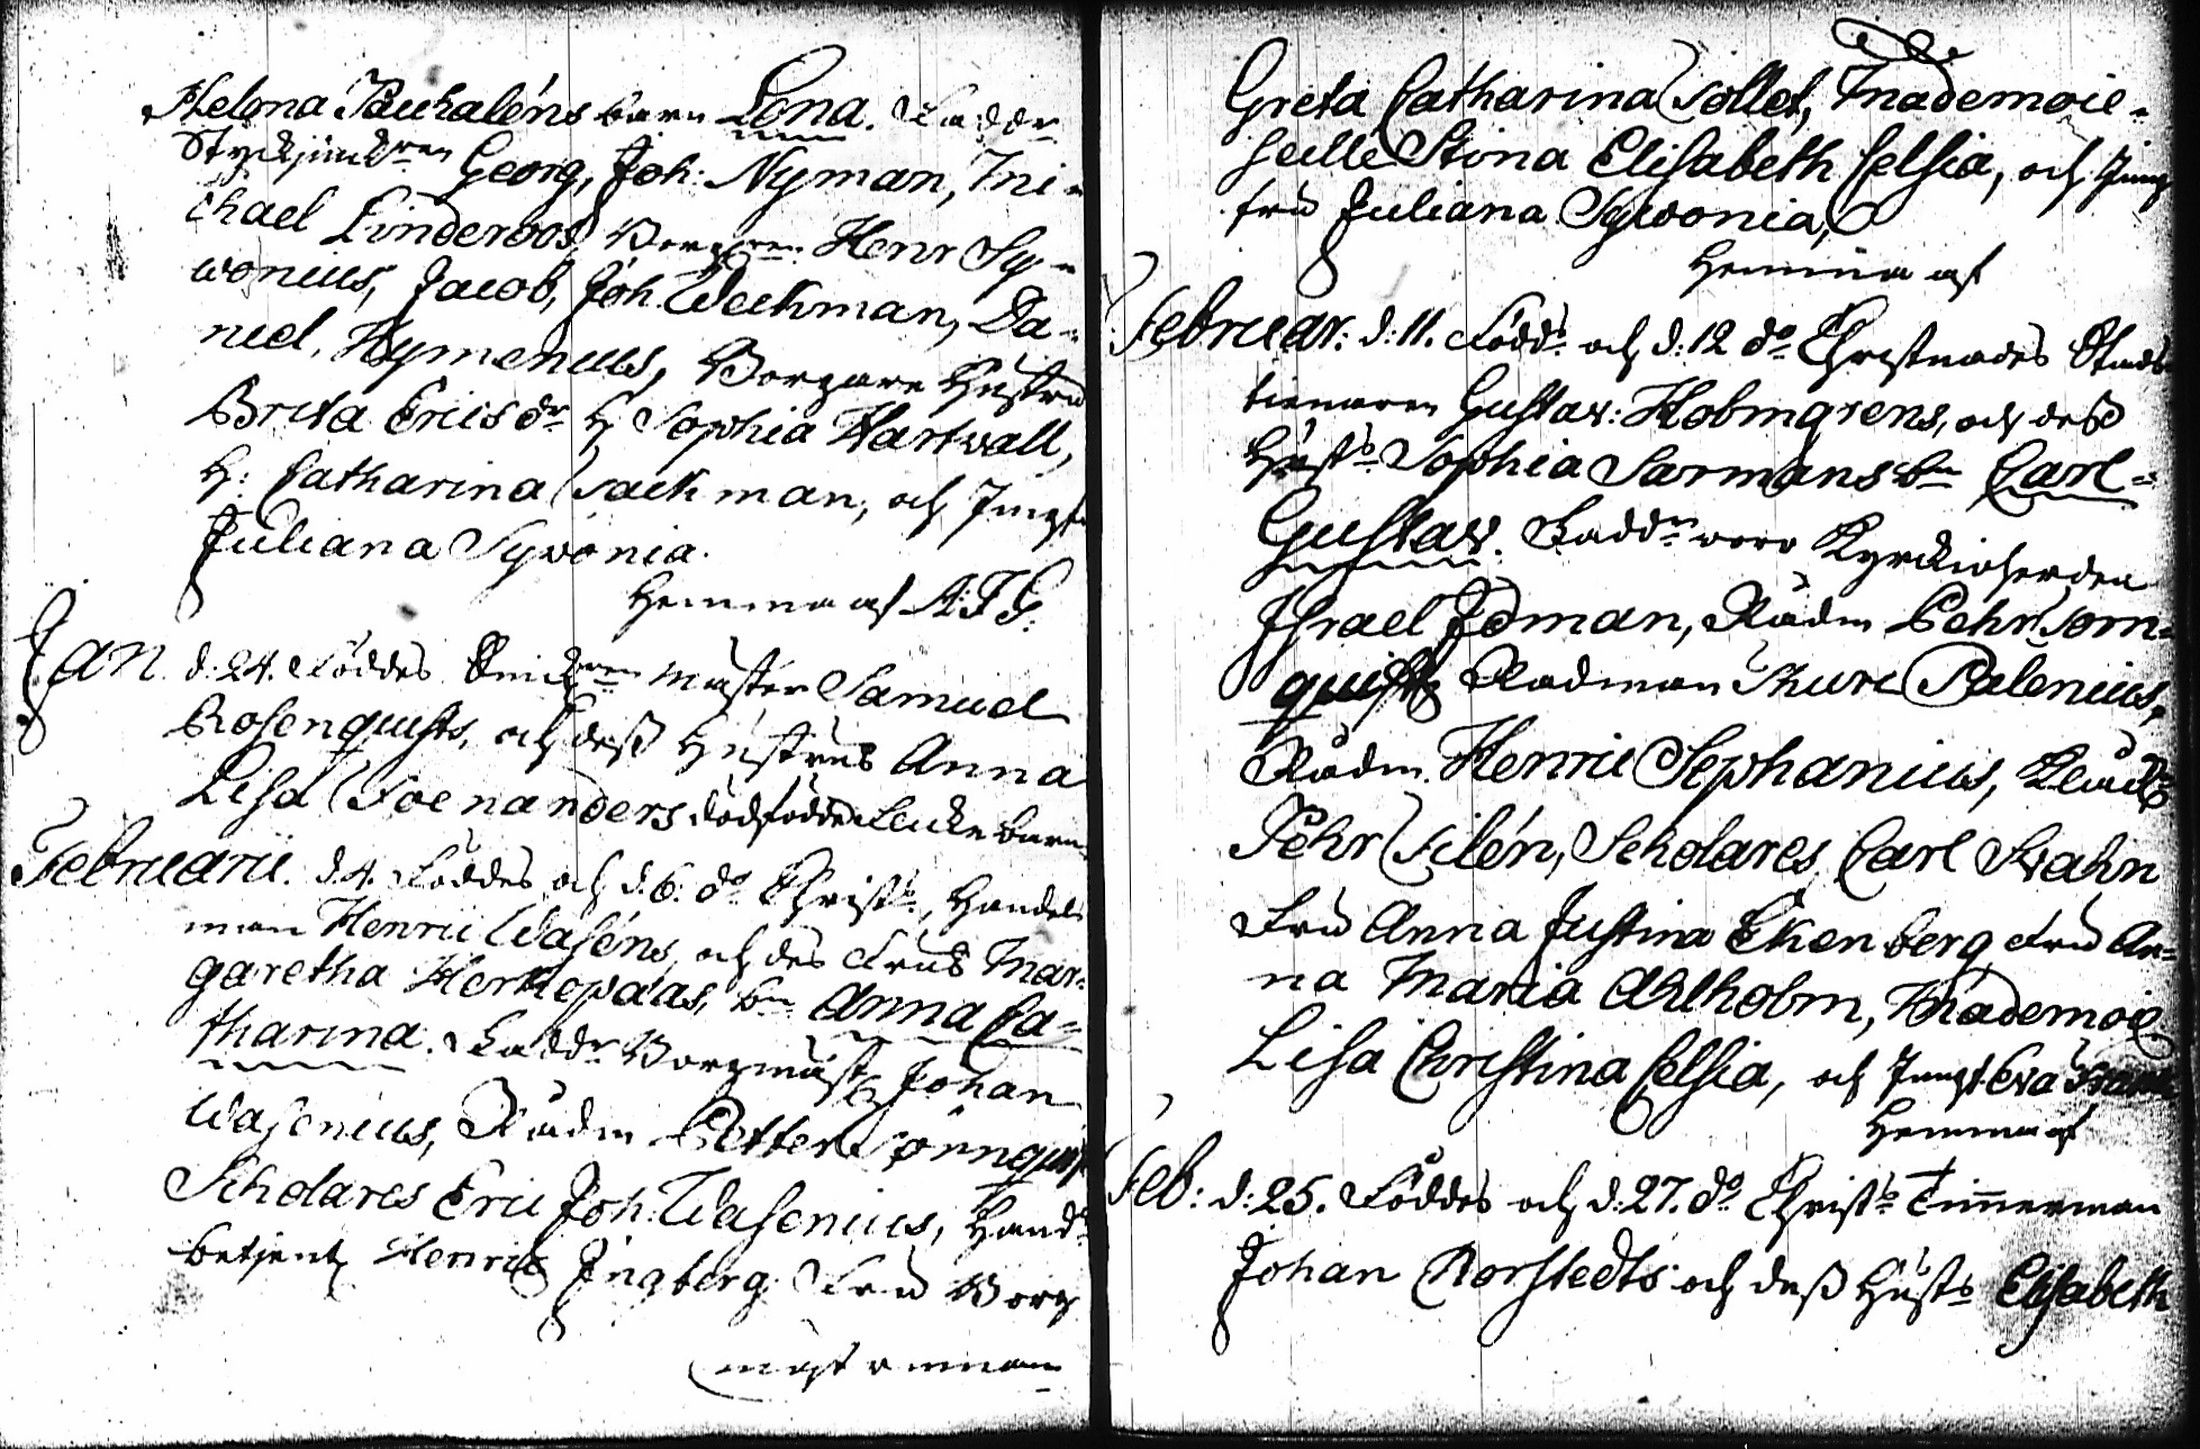 Helena Paukaléns barn Lena. Faddr
Styckjunckren Georg, Joh: Nyman, Mi-
chael Linderoos, Borgren Henr Sy-
wonius, Jacob, Joh. Weckman, Da-
niel, Hymenius, Borgare Hustru
Brita Ericsdr H Sophia Hartwall,
H: Catharina Backman, och Jungf
Juliana Sywonia.
Hemma af A:T G:
Jan. d: 24. Föddes mäster Samuel
Rosenquists, och dess Hustrus Anna
Lisa Foenanders dödfödde barn
Februarii. d. 4. Föddes och d. 6. do Christs, Handels
man Henric Wasens, och des Frus Mar-
garetha Herkepaas, bn Anna Ca-
tharina. Faddr Borgmäst Johan
Wasenius, Rådm Petter Törnquist
Scholares Eric Joh. Wasenius, Hand
betjent Henric Ingberg. Fru Borg
mästarinnan
Greta Catharina Sollet, Mademoie-
selle Stina Elisabeth Celsia, och Jung
fru Juliana Sywonia,
Hemma af
Februar: d: 11. Födds och d: 12 do Christnades Stads
tienaren Gustav: Holmgrens, och dess
Husts Sophia Sarmans bn Carl-
Gustav. Faddr woro Kyrckioherden
Israel Idman, Rådm Pehr Törn-
quist Radman Thure Palenius,
Rådm. Henric Stephanius,
Pehr Filén, Scholares Carl Svahn
Fru Anna Justina Ekenberg, Fru An-
na Maria Ahlholm, Mademoi
Lisa Christina Celsia, och Jungf. Eva
Hemma af
Feb: d: 25. Föddes och d: 27. do Christs Timmerman
Johan Norstedts och dess Husts Elisabeth